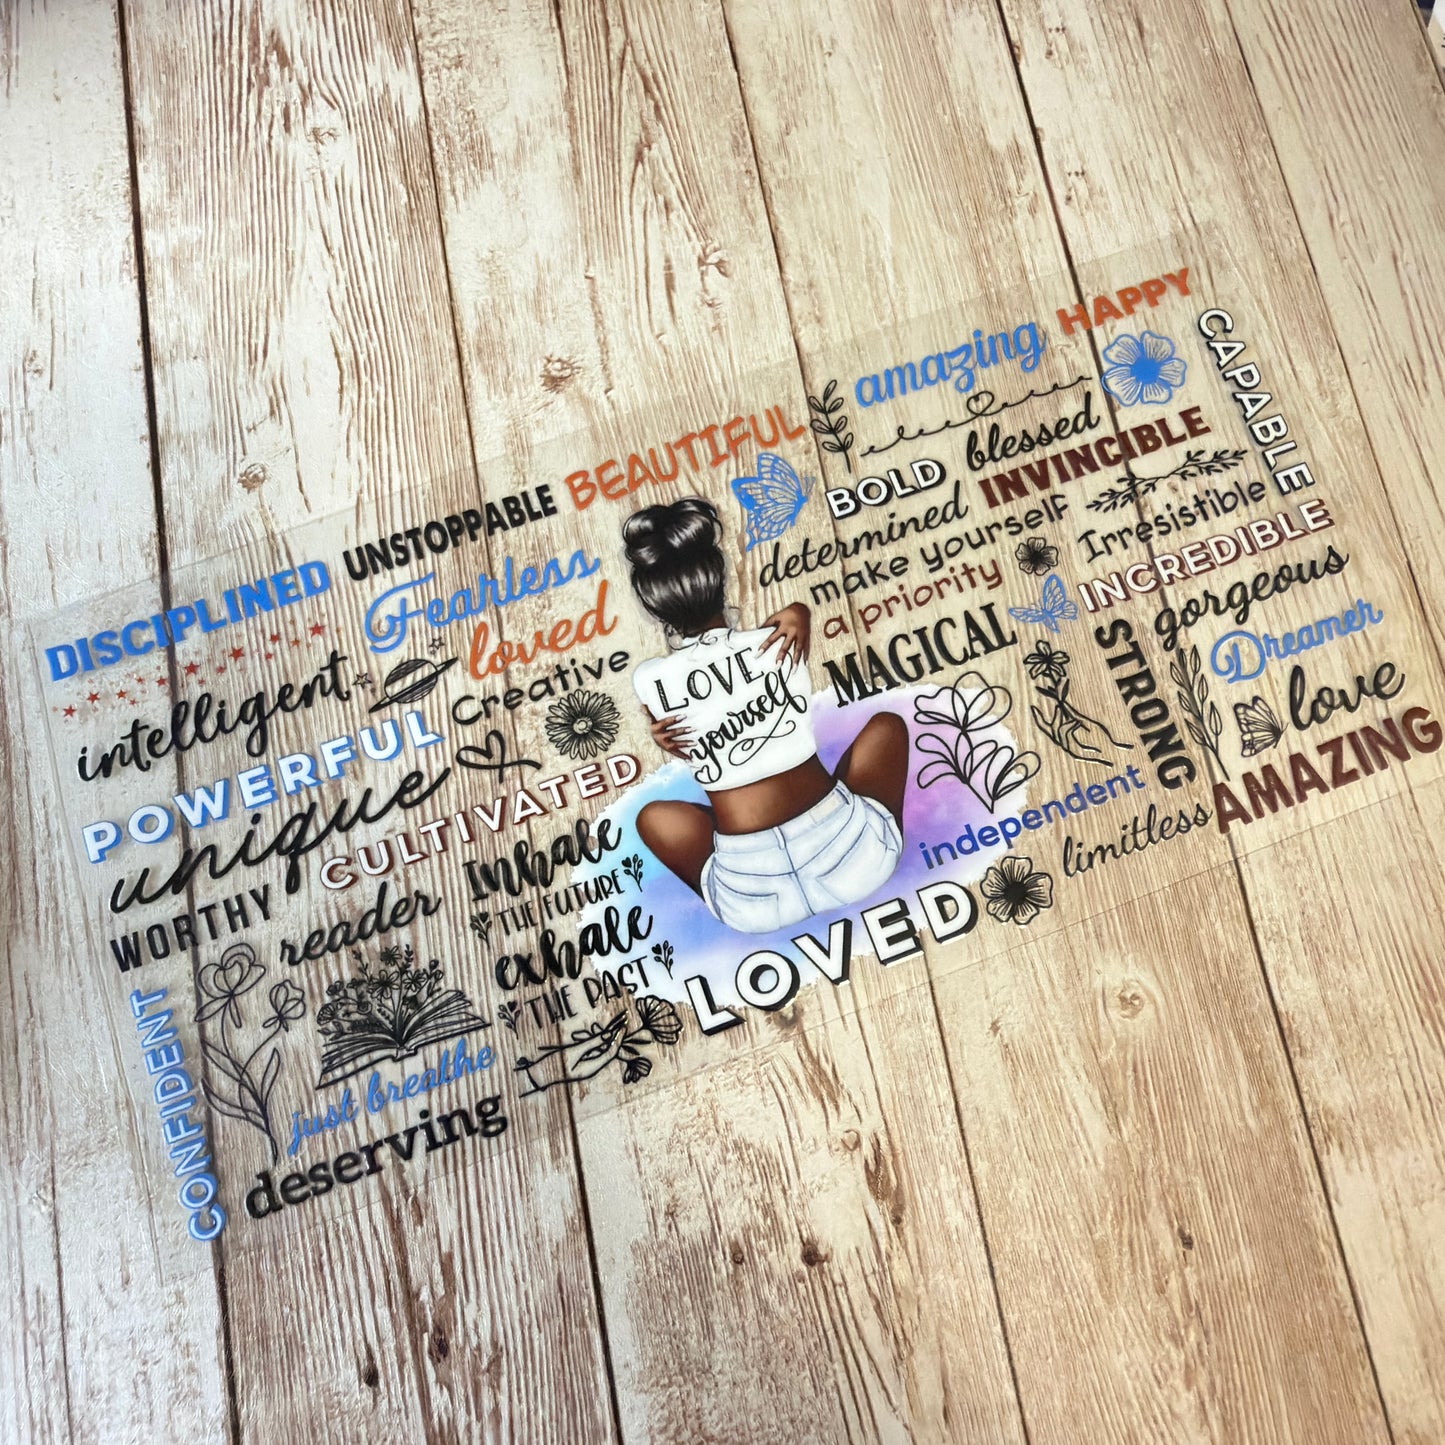 DISCIPLINED
UNSTOPPABLE
BEAUTIFUL
Fearless
loved
intelligent
Creative
POWERFUL
unique
CULTIVATED
WORTHY
reader
Inhale
THE FUTURE
exhale
THE PAST
CONFIDENT
just breathe
deserving
LOVE
yourself
LOVED
amazing
HAPPY
CAPABLE
blessed
BOLD
INVINCIBLE
determined
make yourself
a priority
Irresistible
INCREDIBLE
MAGICAL
gorgeous
STRONG
Dreamer
love
independent
limitless
AMAZING